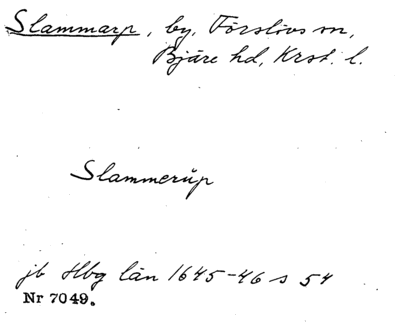 Slammarp, by, Förslövs sn,
Bjäre hd, Krst. l.
Slammerŭp
jb Hbg län 1645-46 s 54
Nr 7049.